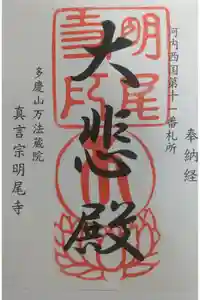 奉納経
河内西国第十一番札所
大悲殿
多慶山万法蔵院
真言宗明尾寺
明尾
寺印